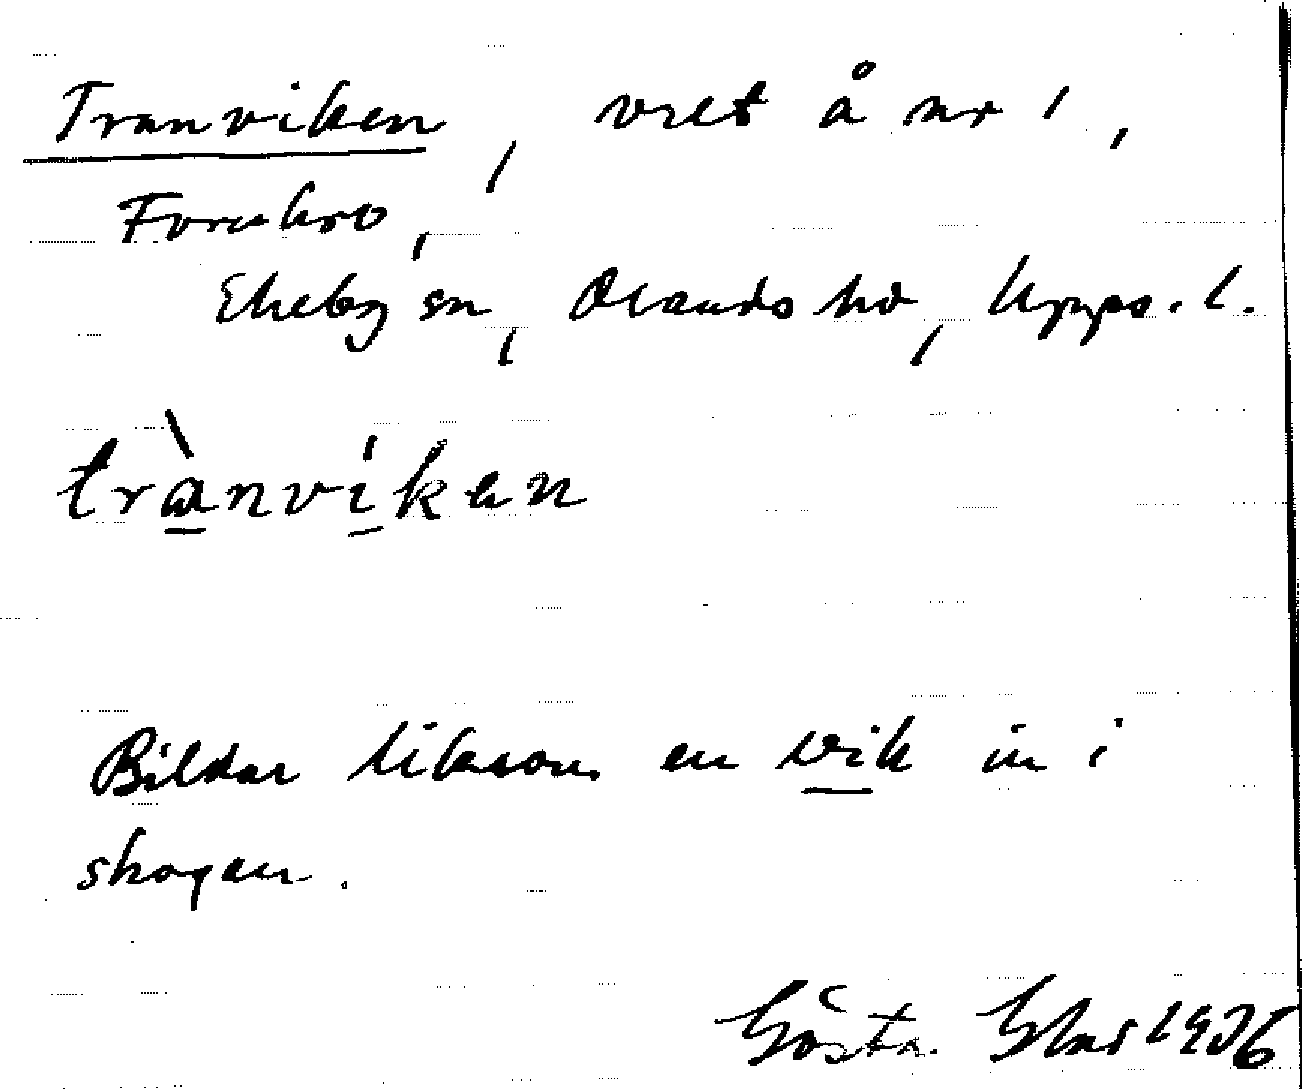 Tranviken, vret å nr 1,
Forckro,
Ekeby sn, Olands hd, Upps. l.
trànvíken
Bildar liksom en vik in i
skogen.
Gösta Elas 1936